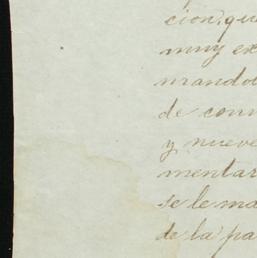 cion, qu
muy ex
mandos
de conv
y nueve
mentar
se le ma
de la pa